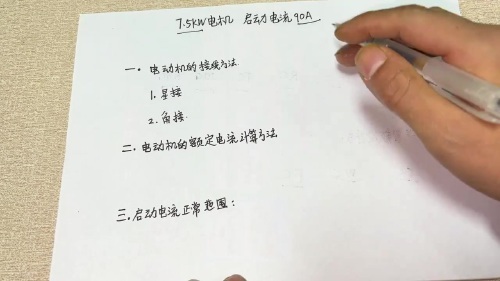 7.5KW电机 启动电流90A
一。电动机的接线方法
1.星接
2.角接.
二.电动机的额定电流计算方法
三.启动电流正常范围：